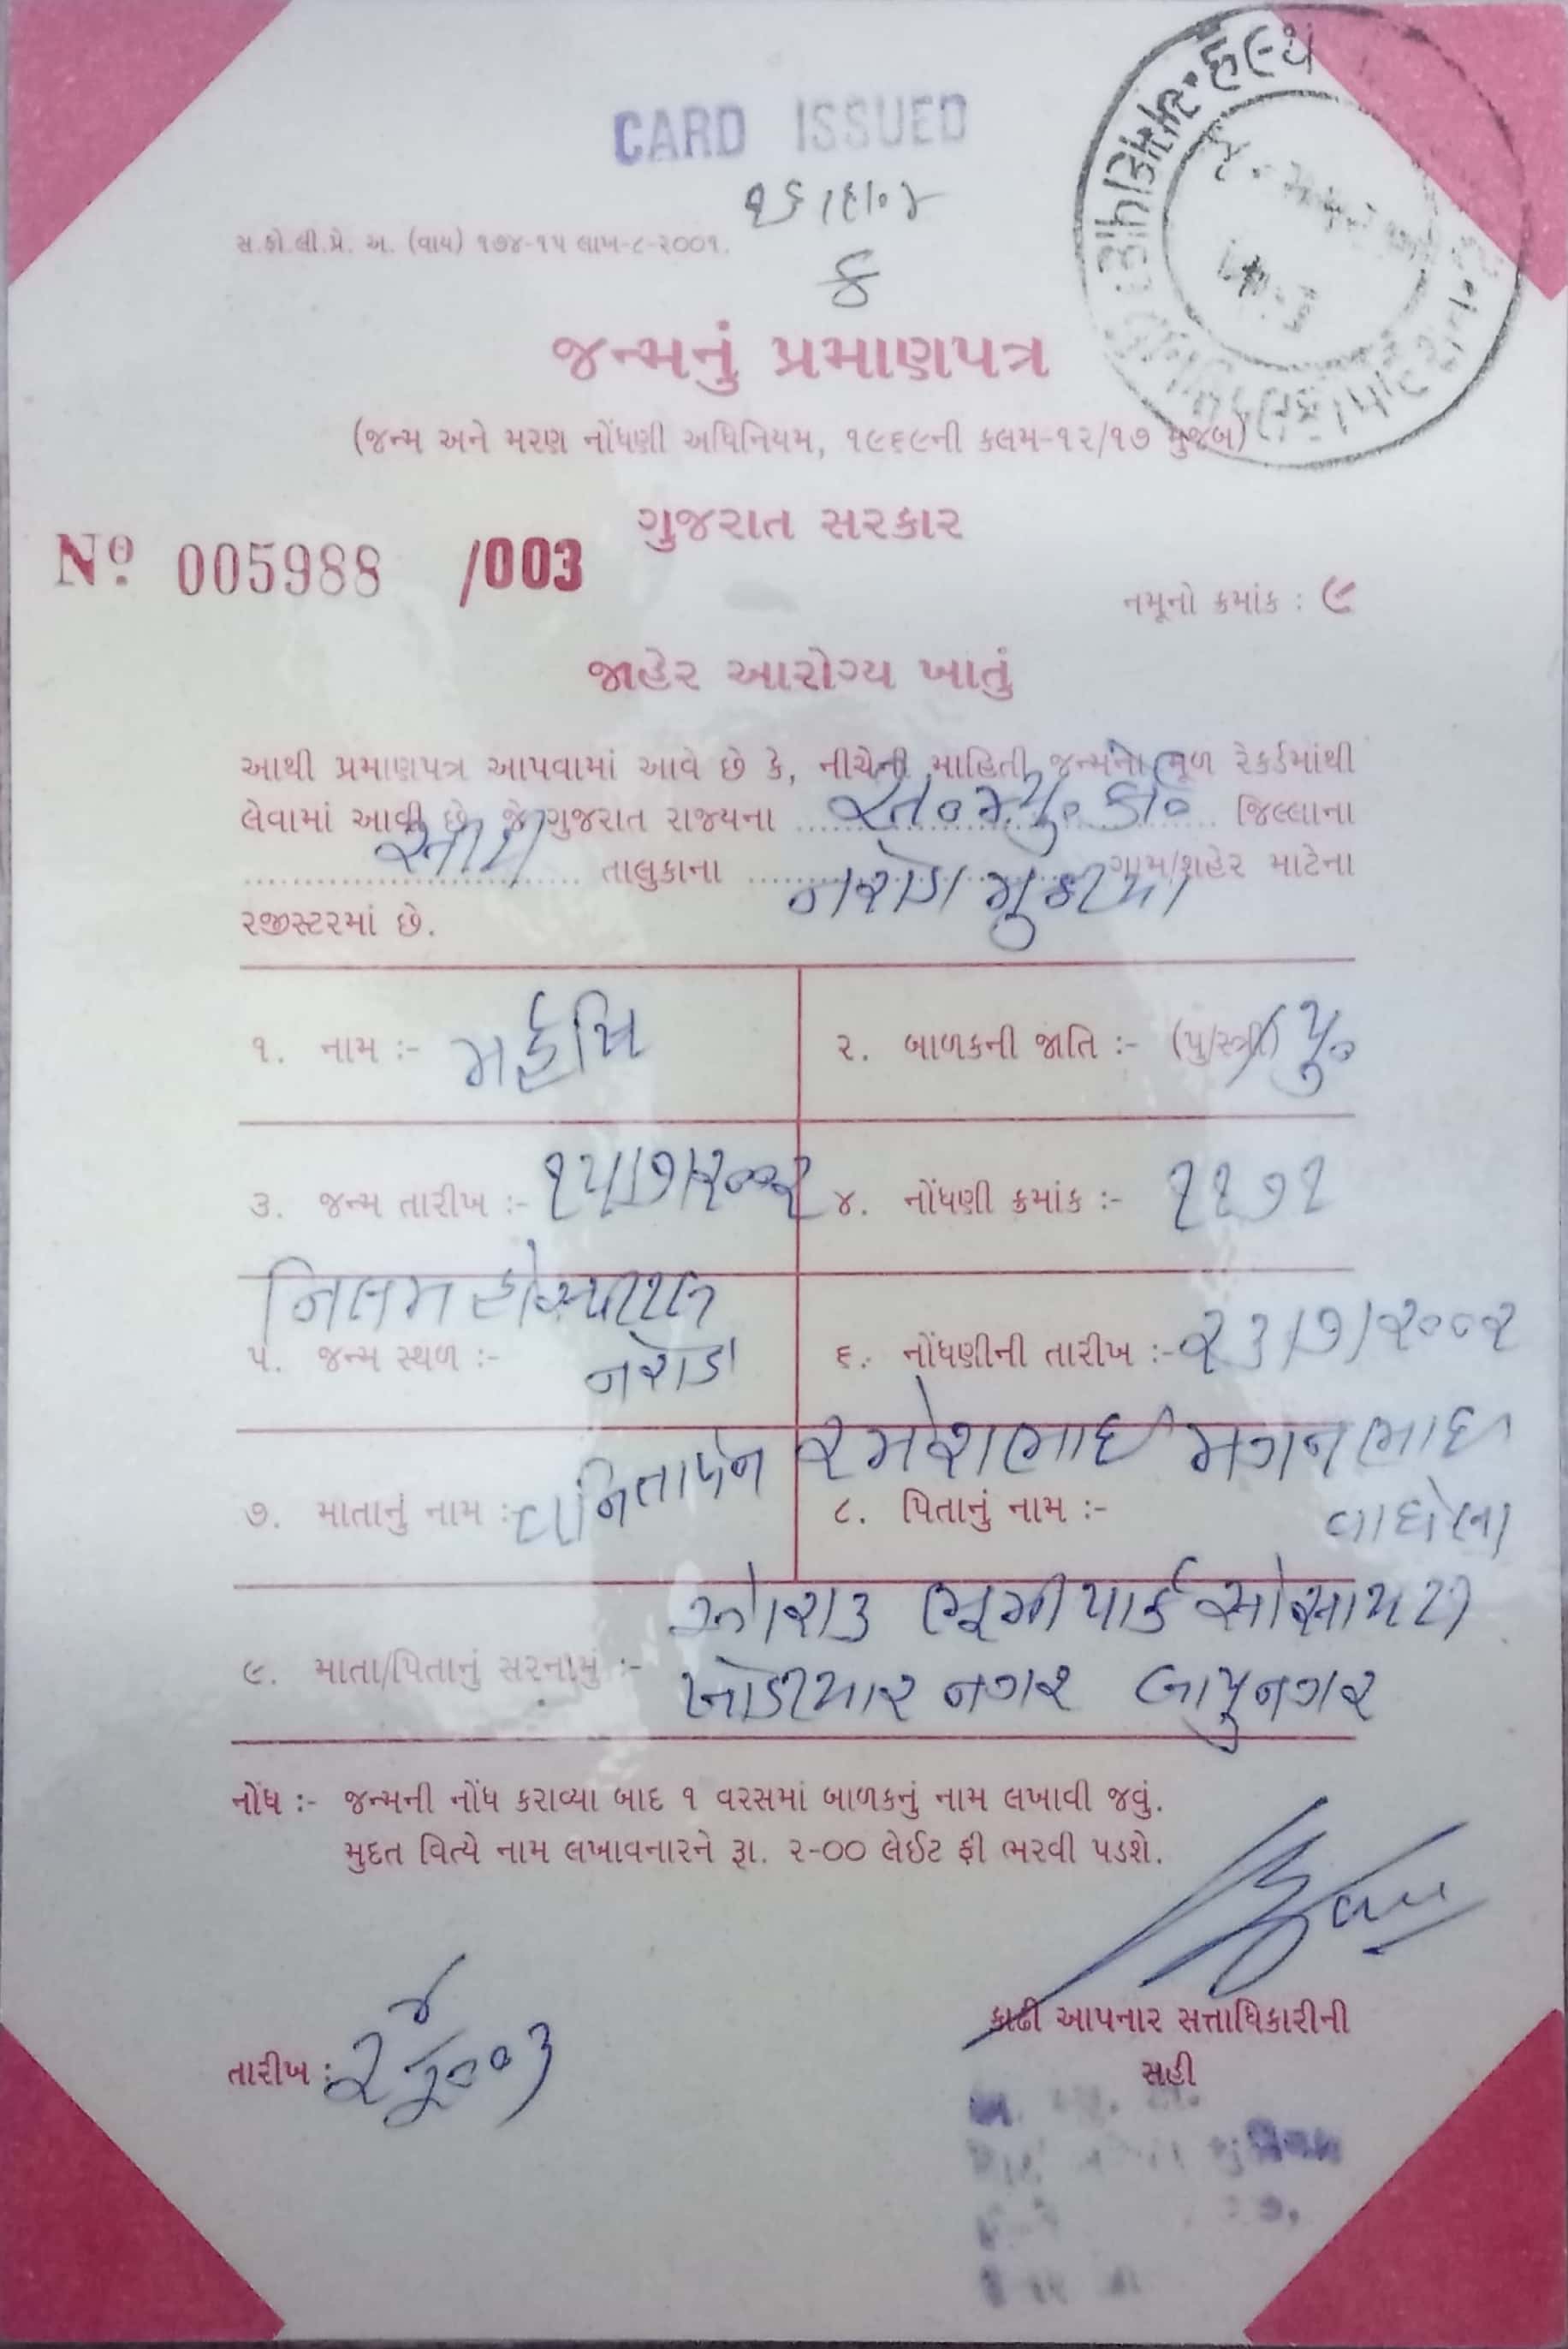 CARD ISSUED
સ.ફો.લી.પ્રે. અ. (વાય) ૧૭૪-૧૫ લાખ-૮-૨૦૦૧.
ક
જન્મનું પ્રમાણપત્ર
(જન્મ અને મરણ નોંધણી અધિનિયમ, ૧૯૬૯ની કલમ-૧૨/૧૭ મુજબ)
ગુજરાત સરકાર
Nº 005988 /003
નમૂનો ક્રમાંક : ૯
જાહેર આરોગ્ય ખાતું
આથી પ્રમાણપત્ર આપવામાં આવે છે કે, નીચેની માહિતી જન્મના મૂળ રેકર્ડમાંથી
લેવામાં આવી છે, જે ગુજરાત રાજ્યના અ૦મ્યુ૦કો૦ જિલ્લાના
તાલુકાના નરોડા મુઠીયા ગામ/શહેર માટેના
રજીસ્ટરમાં છે.
૧. નામ :- મર્હષિ ૨. બાળકની જાતિ :- (પુ/સ્ત્રી) પુ૦
૩. જન્મ તારીખ :- ૧૫/૭/૨૦૦૨ ૪. નોંધણી ક્રમાંક :- ૧૧૭૧
નિલમ હોસ્પીટલ
૫. જન્મ સ્થળ :- નરોડા ૬. નોંધણીની તારીખ :- ૨૩/૭/૨૦૦૨
રમેશભાઈ મગનભાઈ
૭. માતાનું નામ :- વનિતાબેન ૮. પિતાનું નામ :- વાઘેલા
ભૂમીપાર્ક સોસાયટી
૯. માતા/પિતાનું સરનામું :- ખોડીયાર નગર બાપુનગર
નોંધ :- જન્મની નોંધ કરાવ્યા બાદ ૧ વરસમાં બાળકનું નામ લખાવી જવું.
મુદત વિત્યે નામ લખાવનારને રૂા. ૨-૦૦ લેઈટ ફી ભરવી પડશે.
કાઢી આપનાર સત્તાધિકારીની
તારીખ :
સહી